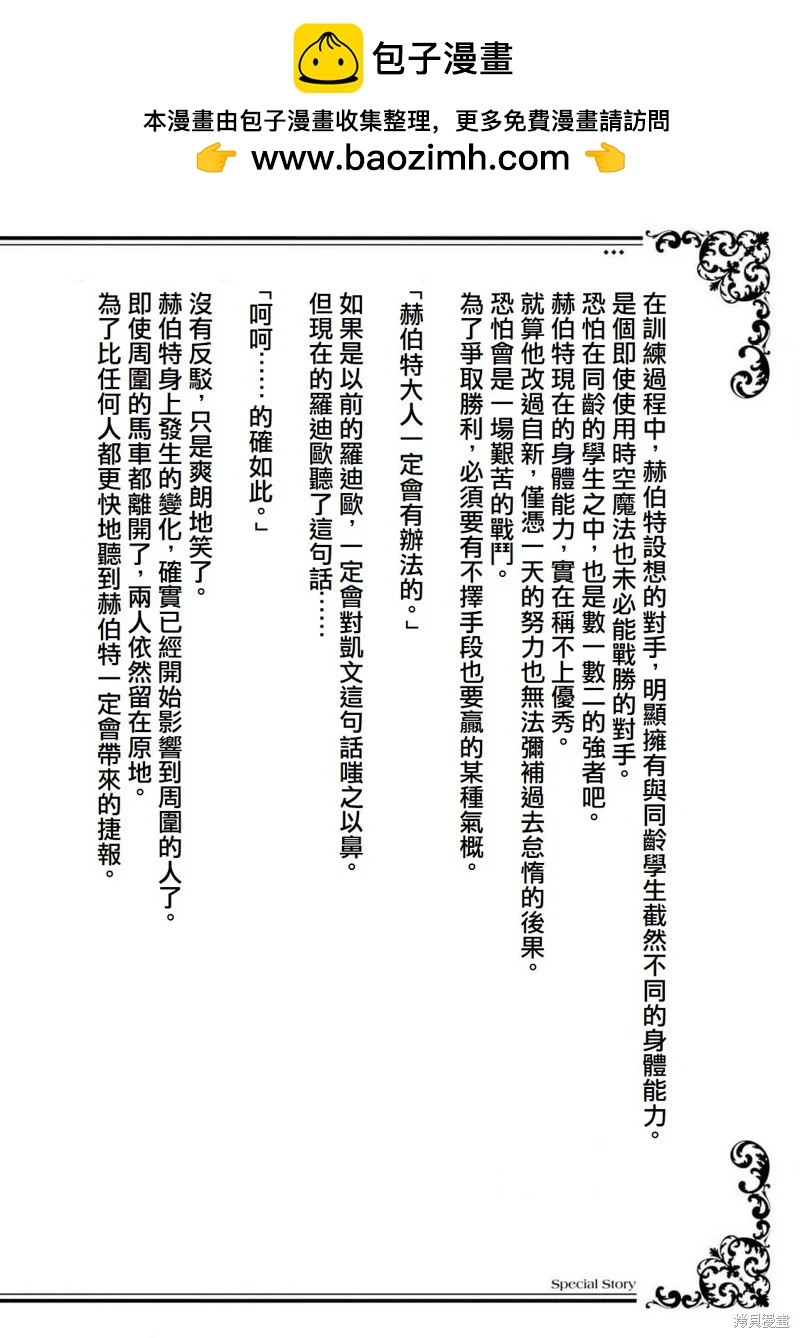 包子漫畫
本漫畫由包子漫畫收集整理，更多免費漫畫請訪問
👉 www.baozimh.com 👈
在訓練過程中，赫伯特設想的對手，明顯擁有與同齡學生截然不同的身體能力。
是個即使使用時空魔法也未必能戰勝的對手。
恐怕在同齡的學生之中，也是數一數二的強者吧。
赫伯特現在的身體能力，實在稱不上優秀。
就算他改過自新，僅憑一天的努力也無法彌補過去怠惰的後果。
恐怕會是一場艱苦的戰鬥。
為了爭取勝利，必須要有不擇手段也要贏的某種氣概。
「赫伯特大人一定會有辦法的。」
如果是以前的羅迪歐，一定會對凱文這句話嗤之以鼻。
但現在的羅迪歐聽了這句話……
「呵呵……的確如此。」
沒有反駁，只是爽朗地笑了。
赫伯特身上發生的變化，確實已經開始影響到周圍的人了。
即使周圍的馬車都離開了，兩人依然留在原地。
為了比任何人都更快地聽到赫伯特一定會帶來的捷報。
Special Story
拷貝漫畫